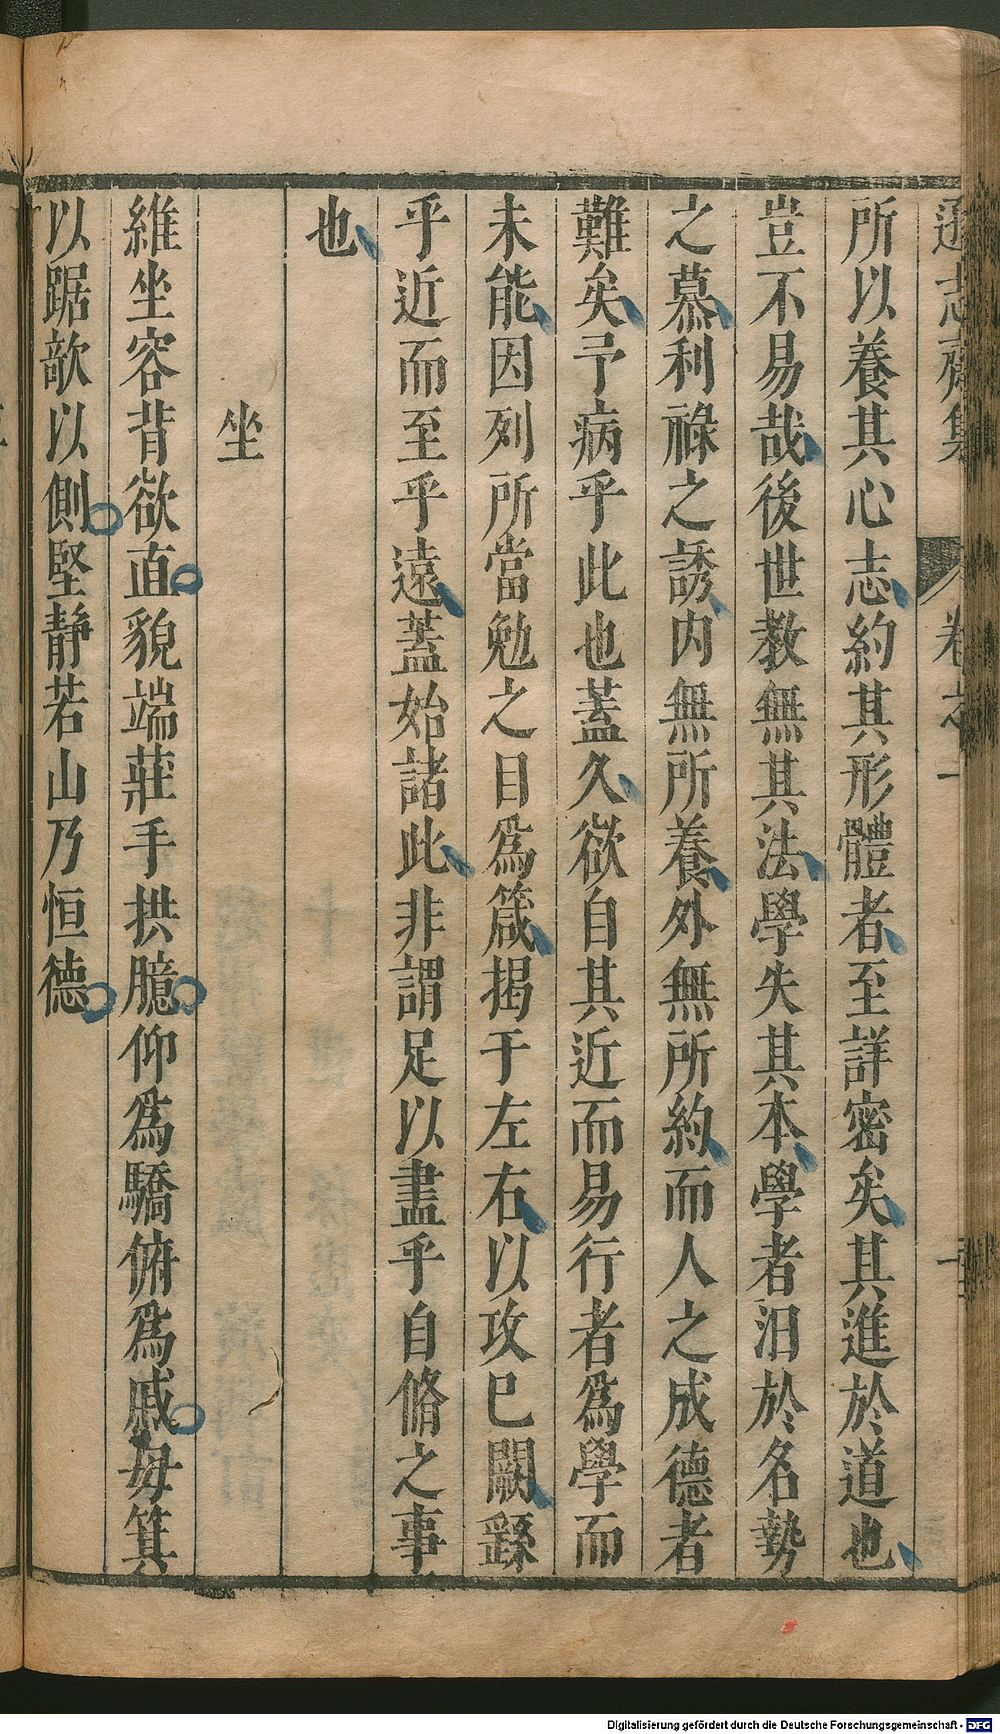 遜志齋集 卷之一
所以養其心志約其形體者至詳密矣其進於道也
豈不易哉後世教無其法學失其本學者汨於名勢
之慕利祿之誘内無所養外無所約而人之成德者
難矣予病乎此也蓋久欲自其近而易行者爲學而
未能因列所當勉之目爲箴揭于左右以攻已闕繇
乎近而至乎遠蓋始諸此非謂足以盡乎自脩之事
也
坐
維坐容背欲直貌端莊手拱臆仰爲驕俯爲戚毋箕
以踞欹以側堅静若山乃恒德
Digitalisierung gefördert durch die Deutsche Forschungsgemeinschaft - DFG